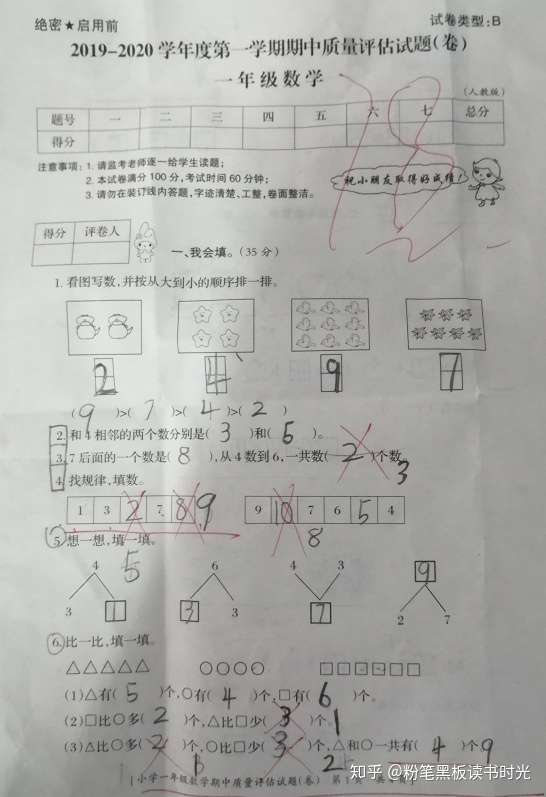 绝密★启用前
试卷类型:B
2019-2020 学年度第一学期期中质量评估试题(卷)
一年级数学
(人教版)
题号 一 二 三 四 五 六 七 总分
得分
注意事项:1. 请监考老师逐一给学生读题;
2. 本试卷满分 100 分,考试时间 60 分钟;
3. 请勿在装订线内答题,字迹清楚、工整,卷面整洁。
祝小朋友取得好成绩!
得分 评卷人
一、我会填。(35 分)
1. 看图写数,并按从大到小的顺序排一排。
2 4 9 7
(9)>(7)>(4)>(2)
2. 和 4 相邻的两个数分别是(3)和(5)。
3. 7 后面的一个数是(8),从 4 数到 6,一共数(2)个数。
3
4. 找规律,填数。
1 3 2 7 8 9
9 10 7 6 5 4
5 8
5. 想一想,填一填。
4 6 4 3 9
3 1 3 3 7 2 7
6. 比一比,填一填。
△△△△△ ○○○○ □□□□□□
(1)△有(5)个,○有(4)个,□有(6)个。
(2)□比○多(2)个,△比□少(3)个。1
(3)△比○多(2)个,○比□少(3)个,△和○一共有(4)个9
1 2
小学一年级数学期中质量评估试题(卷) 第 1 页
知乎 @粉笔黑板读书时光